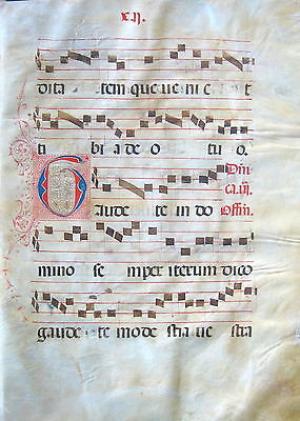 xij.
dita tem que ueni e t
ti bi a de o tuo.
Gaude te in do
mino se mper iterum dico
gaude te mode stia ue stra